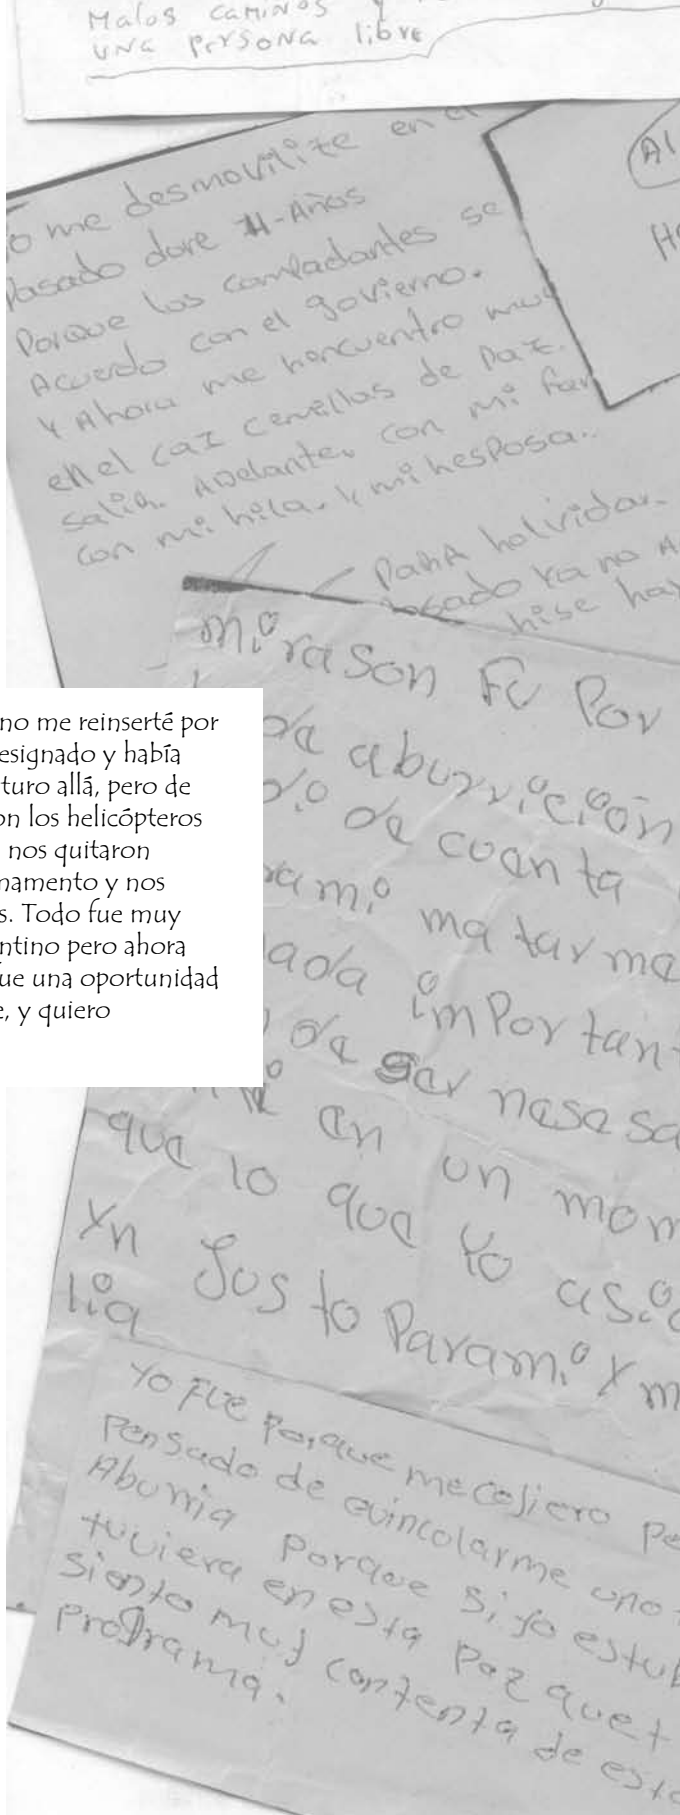 Malos caminos y
una persona libre
o me desmovilize en el
pasado dore 4-Años
Porque los comfadantes se
Acuerdo con el govierno.
Y Ahora me hencuentro muy
en el caI cemillas de paz.
salir. Adelante. con mi fam
con mi hija. y mi hesposa..
PaRA holvidar.
pasado ya no A
hise hay
Al
mi rason Fu Por
da aburrición
di de cuenta
rami matarme
nada importan
de ser nesesa
en un mom
que lo que Yo asi
Yn Justo Parami Y m
lia
no me reinserté por
esignado y había
turo allá, pero de
on los helicópteros
nos quitaron
namento y nos
s. Todo fue muy
ntino pero ahora
ue una oportunidad
e, y quiero
Yo Fue Porque me cojiero Po
Pensado de evincolarme uno
Aburria Porque si yo estub
tuviera en esta Paz que t
siento muy contenta de est
Programa.